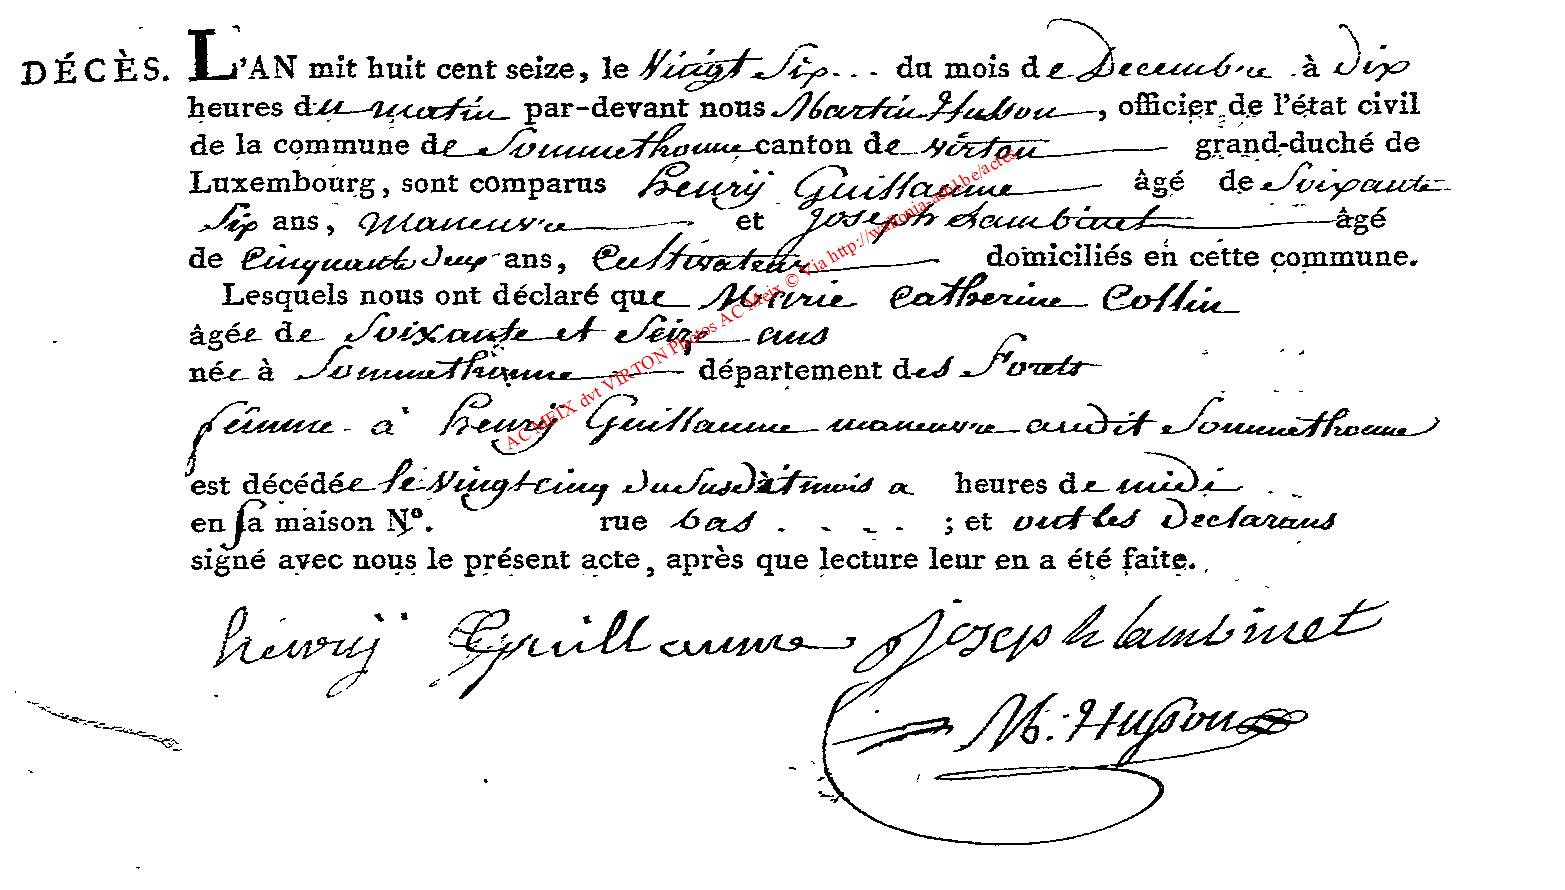 DÉCÈS. L'AN mit huit cent seize, le Vingt Six... du mois de Decembre à dix
heures du matin par-devant nous Martin Husson, officier de l'état civil
de la commune de Sommethonne canton de virton grand-duché de
Luxembourg, sont comparus henrÿ Guillaume âgé de Soixante
Six ans, maneuvre et joseph Lambinet âgé
de Cinquante deux ans, Cultivateur domiciliés en cette commune.
Lesquels nous ont déclaré que Marie Catherine Collin
âgée de Soixante et Seize ans
née à Sommethonne département des Forets
femme à henrÿ Guillaume maneuvre audit Sommethonne
est décédée le Vingt cinq du susdit mois a heures de midi
en sa maison N.º rue bas . . . . ; et ont les declarans
signé avec nous le présent acte, après que lecture leur en a été faite.
henrÿ Guillaume joseph lambinet
M: Husson
AC MEIX dvt VIRTON Photos AC Meix © Via http://wallonia-asbl.be/actes